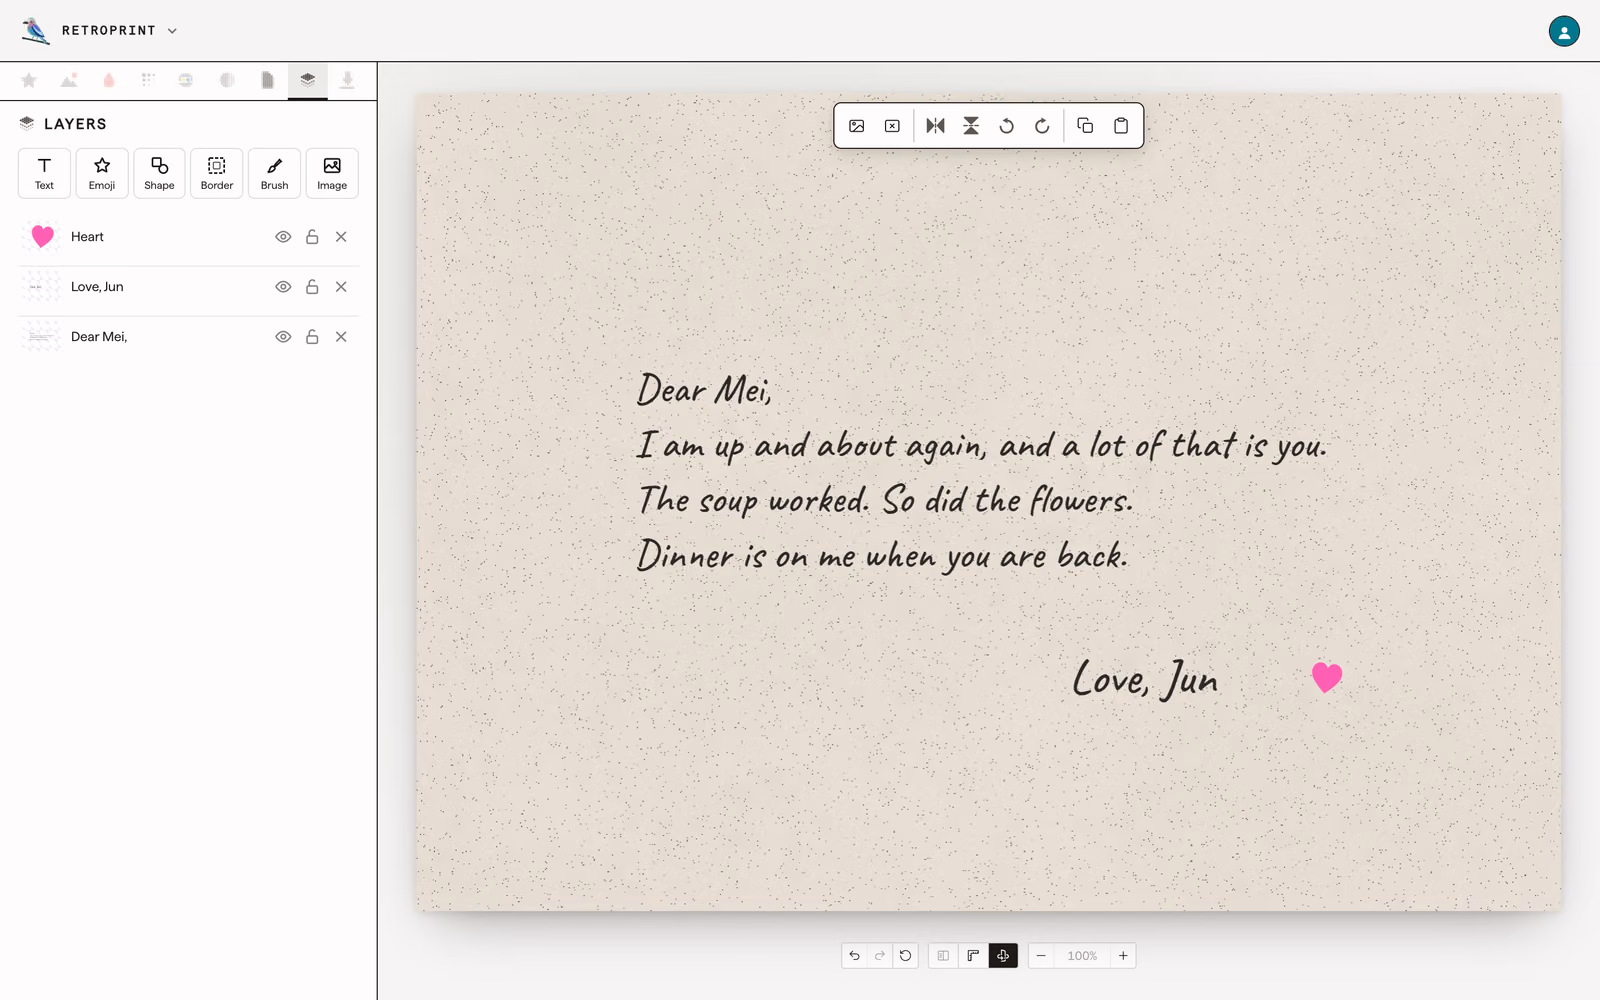 RETROPRINT
LAYERS
Text
Emoji
Shape
Border
Brush
Image
Heart
Love, Jun
Dear Mei,
Dear Mei,
I am up and about again, and a lot of that is you.
The soup worked. So did the flowers.
Dinner is on me when you are back.
Love, Jun
100%